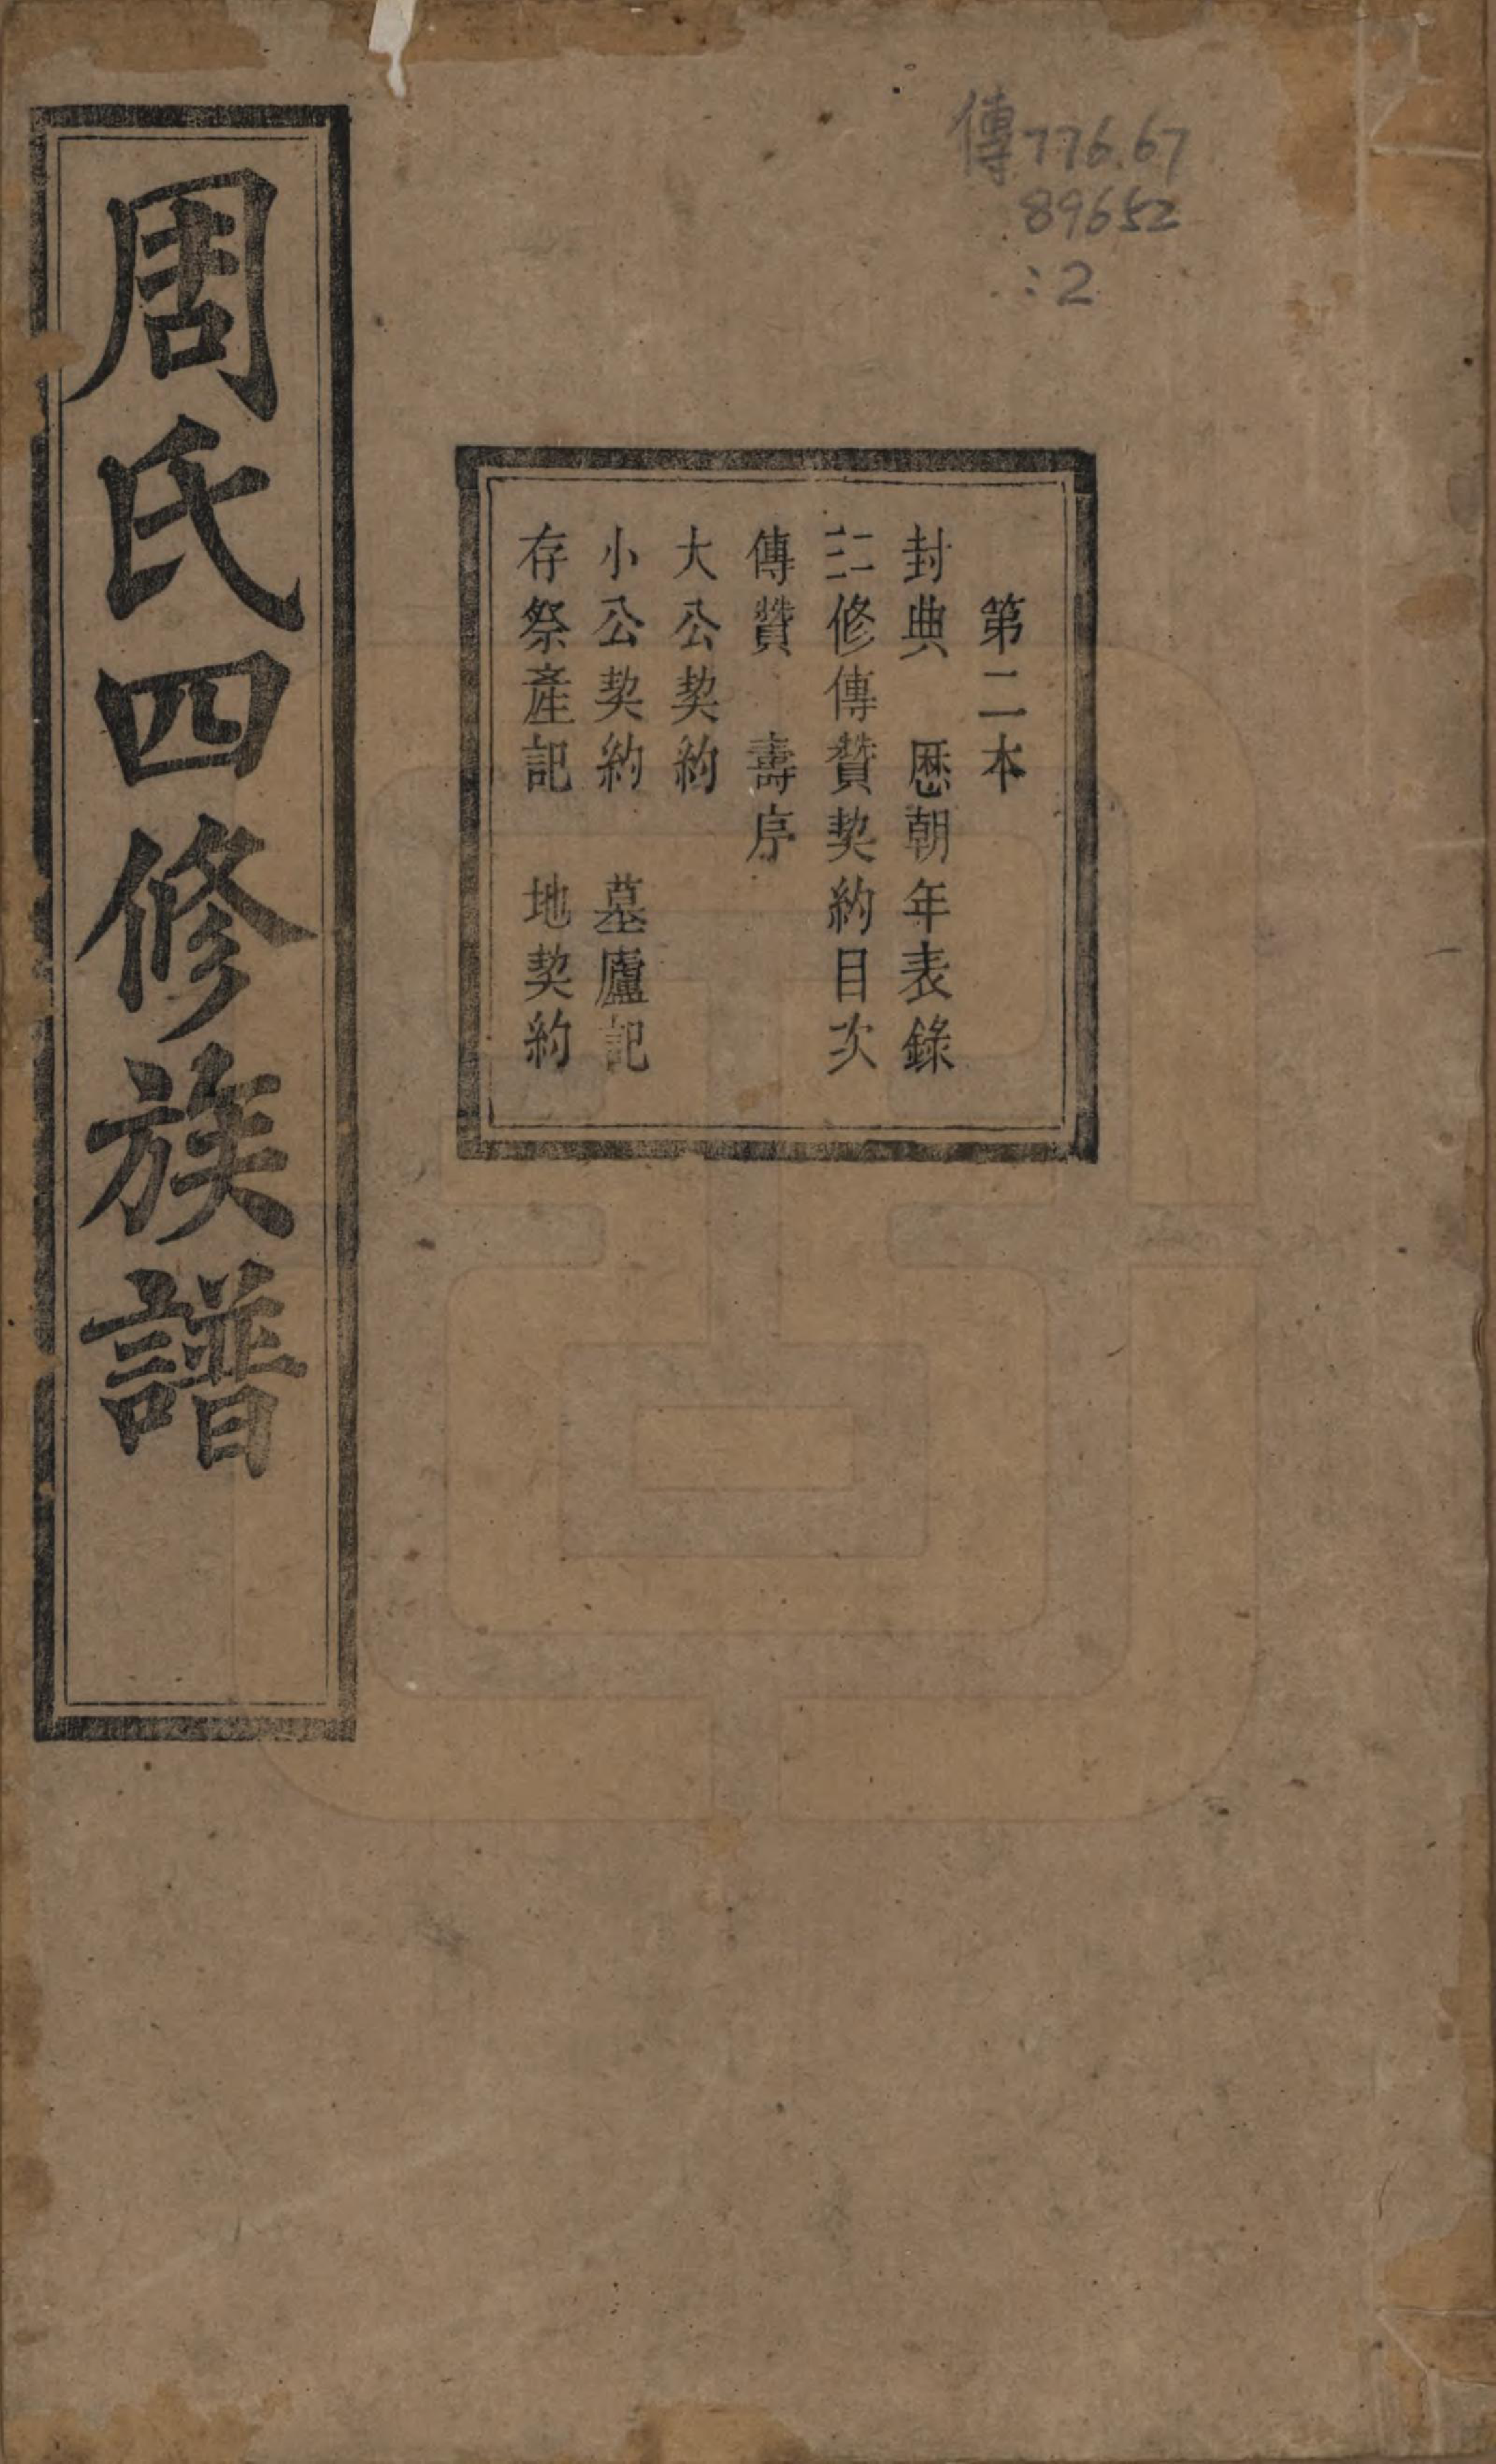 傳776.67
89652
:2
第二本
封典　歷朝年表錄
二三修傳贊契約目次
傳贊　壽序
大公契約
小公契約　墓廬記
存祭產記　地契約
周氏四修族譜